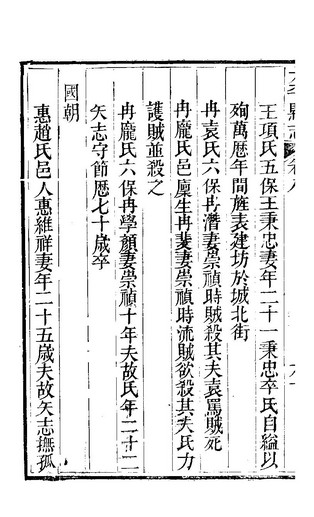 王項氏五保王秉忠妻年二十一秉忠卒氏自縊以
殉萬歷年間旌表建坊於城北街
冉袁氏六保冉潛妻崇禎時賊殺其夫袁罵賊死
冉龐氏邑廩生冉斐妻崇禎時流賊欲殺其夫氏力
護賊並殺之
冉龐氏六保冉學顏妻崇禎十年夫故氏年二十二
矢志守節歷七十歲卒
國朝
惠趙氏邑人惠維祥妻年二十五歲夫故矢志撫孤